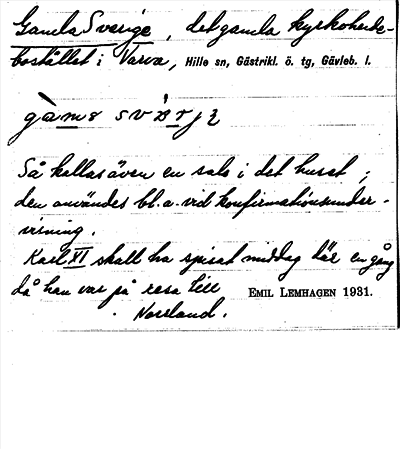 Gamla Sverige, det gamla kyrkoherde-
bostället i Varva, Hille sn, Gästrikl. ö. tg, Gävleb. l.
Så kallas även en sal i det huset;
den användes bl.a. vid konfirmationsunder-
visning.
Karl XI skall ha spisat middag där en gång
då han var på resa till
Norrland.
EMIL LEMHAGEN 1931.